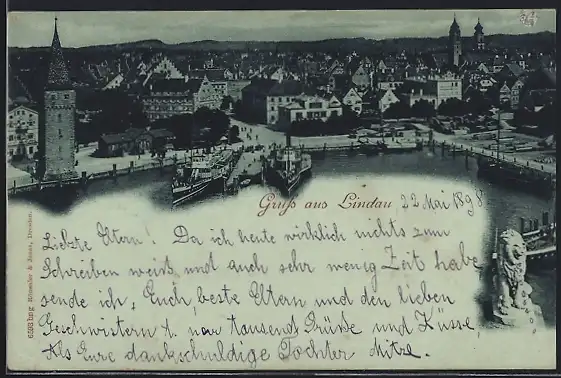 Gruß aus Lindau 22 Mai 1898
Liebste Eltern! Da ich heute wirklich nichts zum
Schreiben weiß und auch sehr wenig Zeit habe
sende ich, Euch, beste Eltern und den lieben
Geschwistern nur tausend Grüße und Küsse,
Als Eure dankschuldige Tochter Mitze.
Dresden.